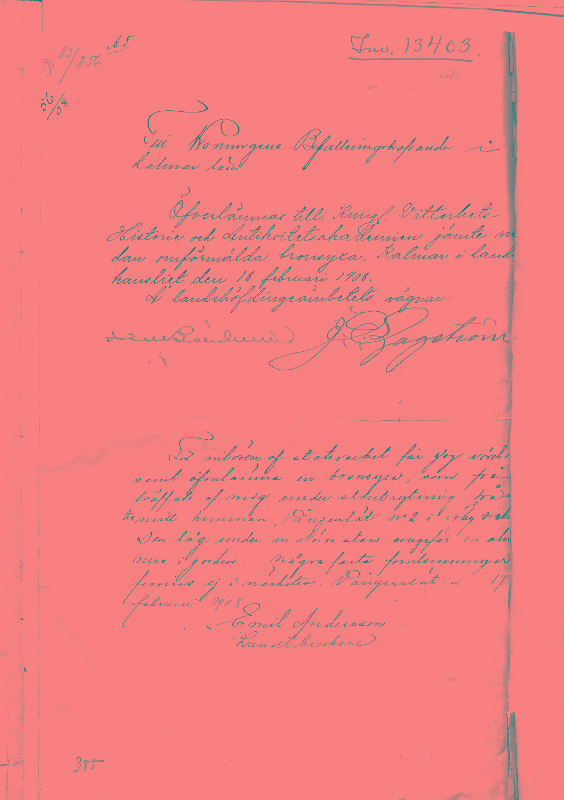 Inv. 13403.
23/2 56 A.F.
Till Konungens Befallningshafvande i
Kalmar län
Öfverlämnas till Kungl. Vitterhets-
Historie och Antikvitetsakademien jämte
dan omförmälda bronsyxa. Kalmar i lands
kansliet den 18 februari 1908.
Å landshöfdingeämbetets vägnar:
J. C. Bagström
Till inlösen af statsverket får jag vörd
samt öfverlämna en bronsyxa, som på
träffats af mig under stenbrytning från
mitt hemman, Vångerslät No 2 i
Den låg under en större sten ungefär en aln
nere i jorden. Några fasta fornlämningar
finnas ej i närheten. Vångerslät d. 17
februari 1908.
Emil Andersson
Landtbrukare
385